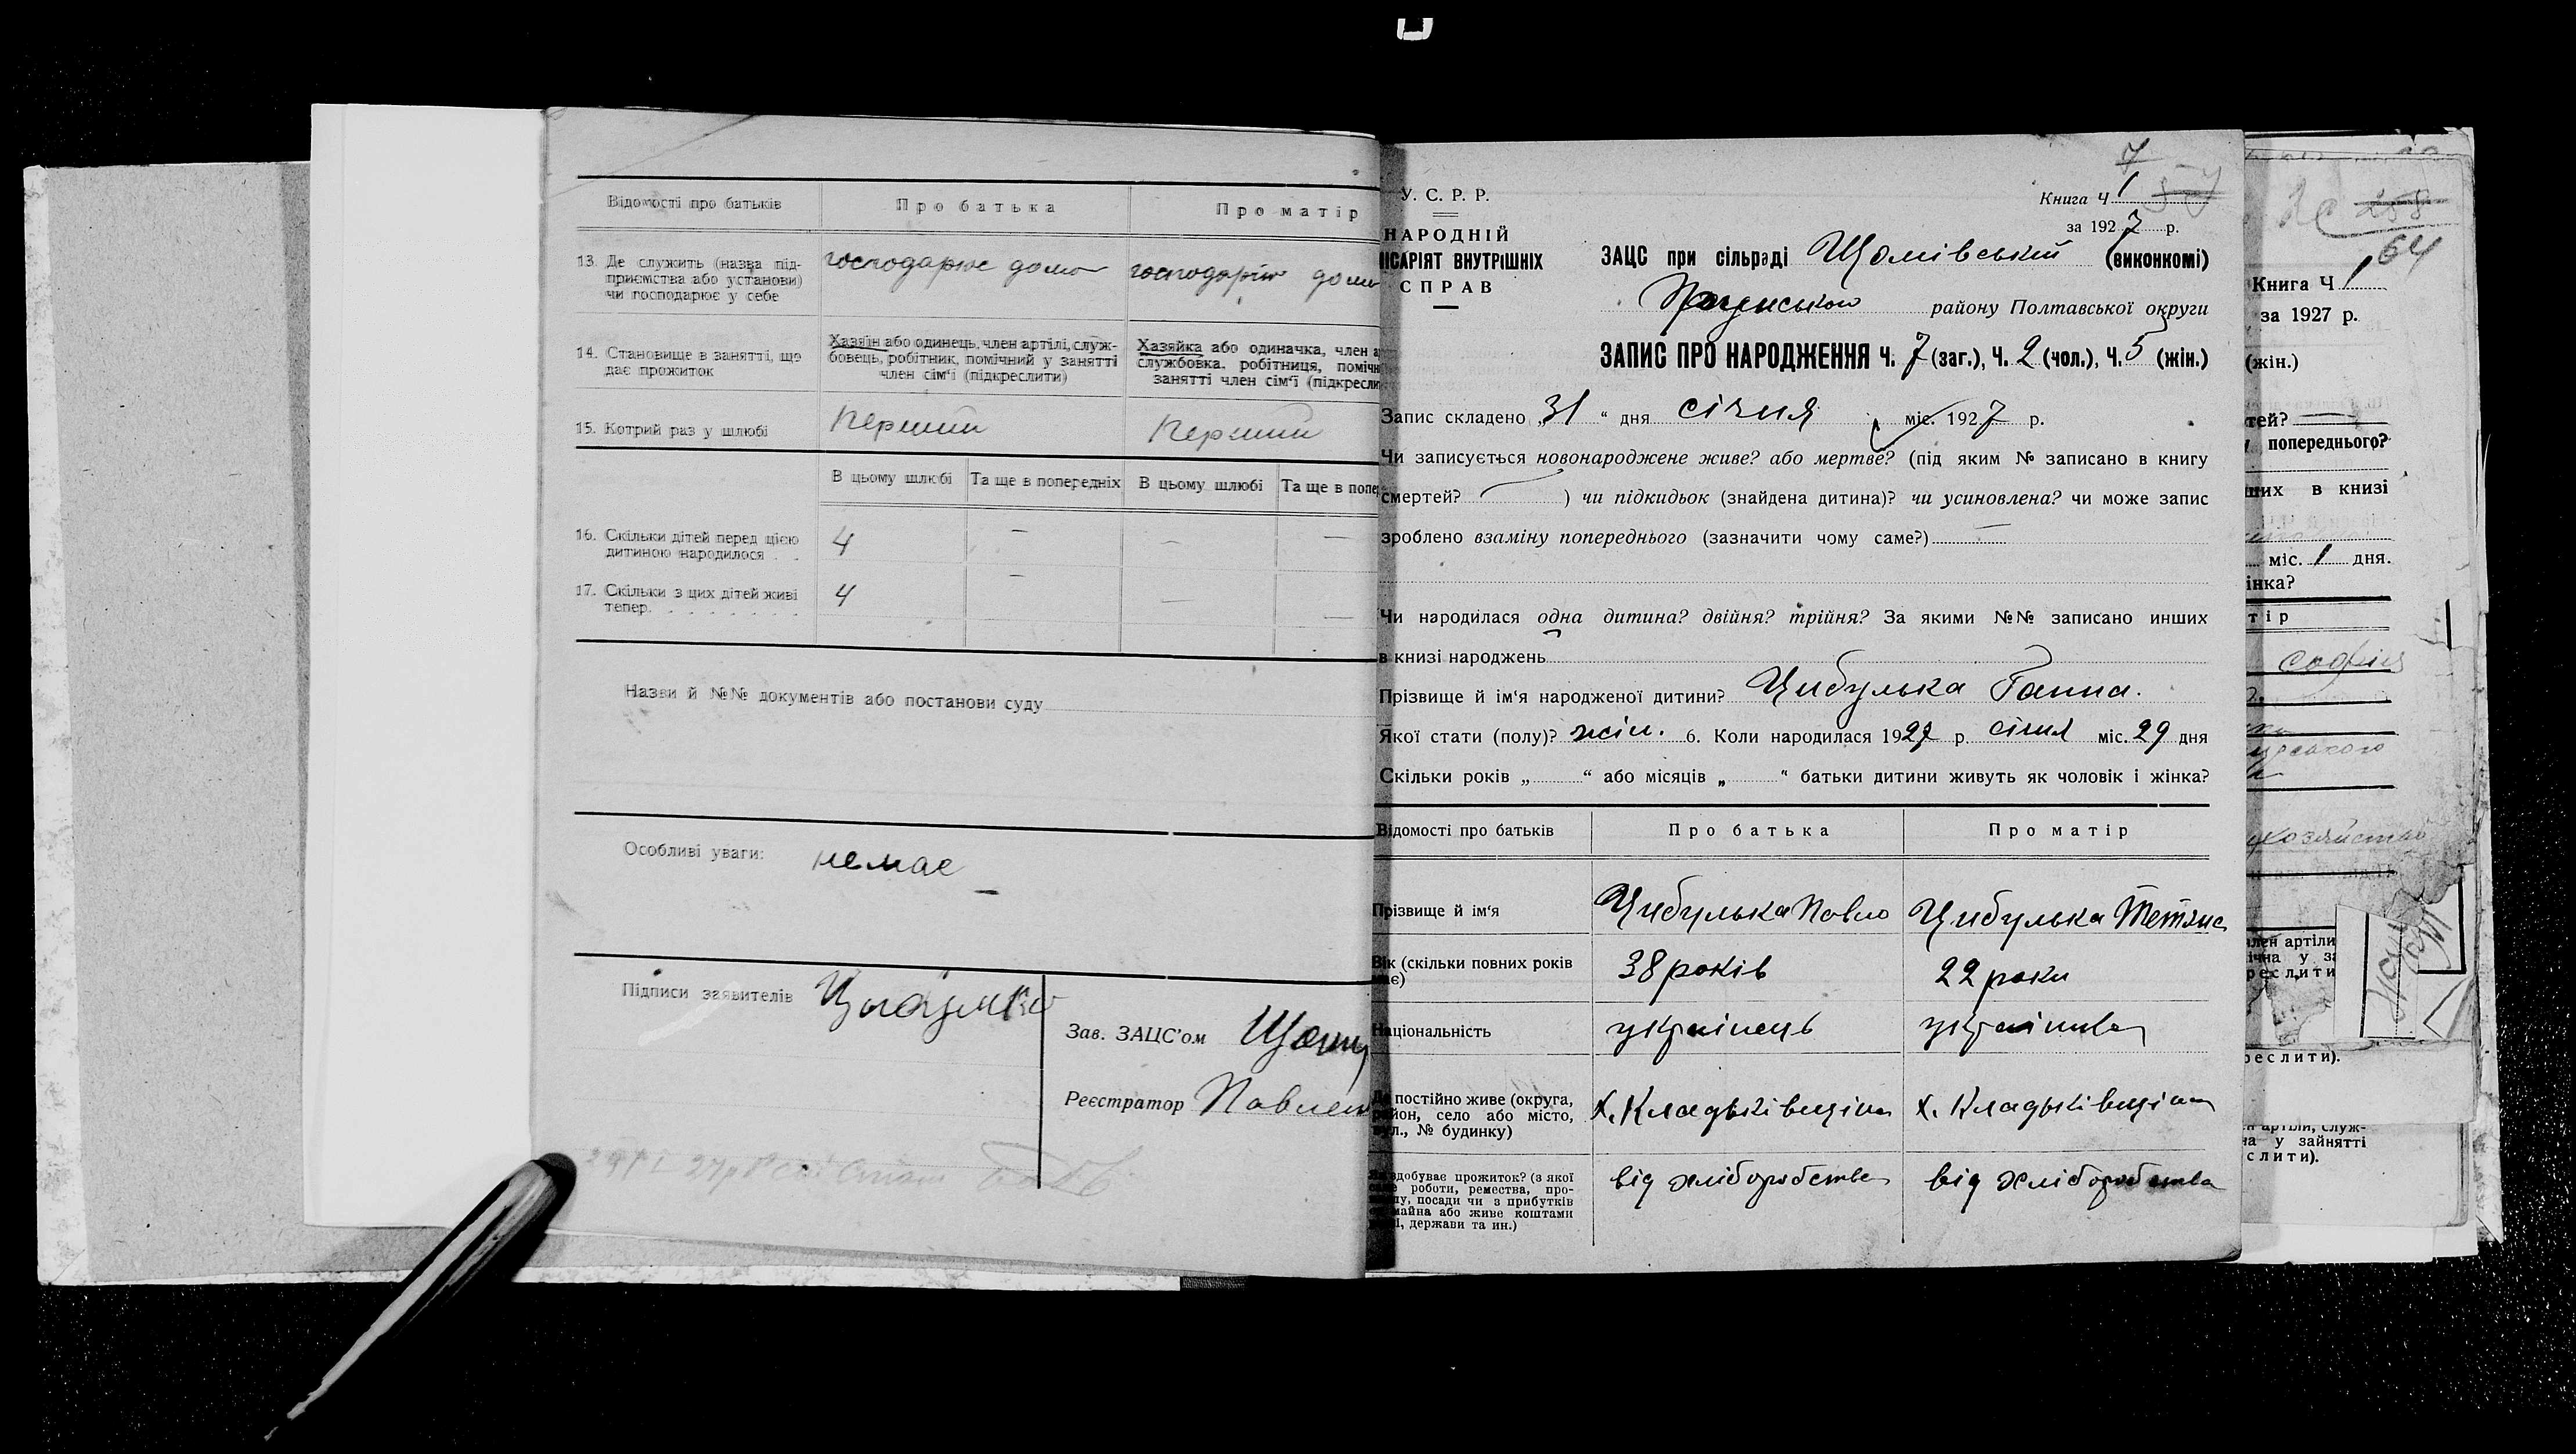 Відомості про батьків
Про батька
Про матір
13. Де служить (назва під-
приємства або установи)
чи господарює у себе
господарює дома
господарює дома
14. Становище в занятті, що
дає прожиток
Хазяїн або одинець, член артілі, служ-
бовець, робітник, помічний у занятті
член сім'ї (підкреслити)
Хазяйка або одиначка, член а
службовка, робітниця, поміч
занятті член сім'ї (підкресли
15. Котрий раз у шлюбі
Перший
Перший
В цьому шлюбі
Та ще в попередніх
В цьому шлюбі
Та ще в попе
16. Скільки дітей перед цією
дитиною народилося . .
4 — — —
17. Скільки з цих дітей живі
тепер. . . . . . . .
4 — — —
Назви й №№ документів або постанови суду
Особливі уваги: немає —
Підписи заявителів Цибулька
Зав. ЗАЦС'ом
Реєстратор
У. С. Р. Р.
НАРОДНІЙ
ІСАРІЯТ ВНУТРІШНІХ
СПРАВ
7
Книга Ч 1
за 1927 р.
ЗАЦС при сільраді (виконкомі)
району Полтавської округи
ЗАПИС ПРО НАРОДЖЕННЯ Ч. 7 (заг.), Ч. 2 (чол.), Ч. 5 (жін.)
Запис складено „31 " дня січня міс. 1927 р.
Чи записується новонароджене живе? або мертве? (під яким № записано в книгу
смертей? ) чи підкидьок (знайдена дитина)? чи усиновлена? чи може запис
зроблено взаміну попереднього (зазначити чому саме?) —
Чи народилася одна дитина? двійня? трійня? За якими №№ записано инших
в книзі народжень
Прізвище й ім'я народженої дитини? Цибулька Ганна.
Якої стати (полу)? жін. 6. Коли народилася 1927 р. січня міс. 29 дня
Скільки років „ " або місяців „ " батьки дитини живуть як чоловік і жінка?
Відомості про батьків
Про батька
Про матір
Прізвище й ім'я
Цибулька Павло
Цибулька Тетяна
Вік (скільки повних років
має)
38 років
22 роки
Національність
українець
українка
постійно живе (округа,
район, село або місто,
вул., № будинку)
х. Кладьківщина
х. Кладьківщина
здобуває прожиток? (з якої
роботи, ремества, про-
посади чи з прибутків
майна або живе коштами
держави та ин.)
від хліборобства
від хліборобства
258
64
Книга Ч 1
за 1927 р.
(жін.)
тей?
попереднього?
ших в книзі
міс. 1 дня.
інка?
тір
Софія
член артіли
у за
реслити
реслити).
артіли, служ-
на у зайнятті
слити).